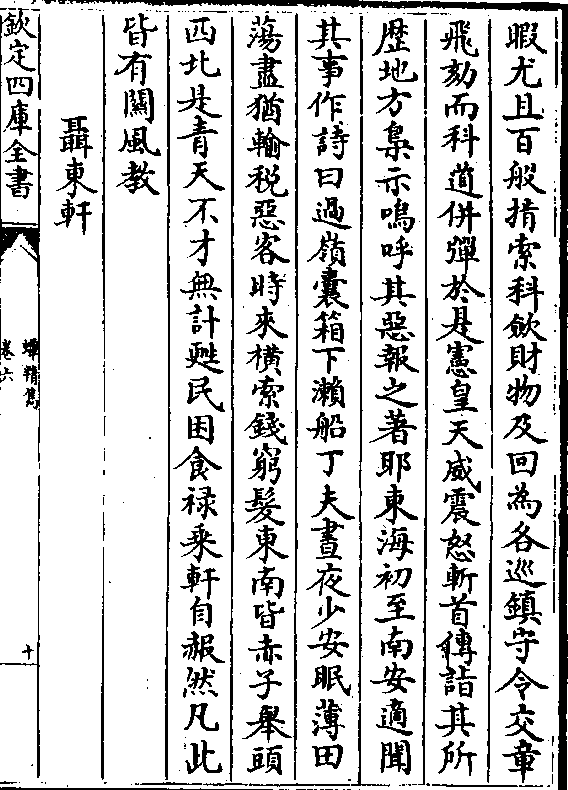 暇尤且百般掯索科歛財物及回為各巡鎮守令交章
飛劾而科道併彈於是憲皇天威震怒斬首傳詣其所
歴地方梟示嗚呼其惡報之著耶東海初至南安適聞
其事作詩曰過嶺囊箱下瀨船丁夫晝夜少安眠薄田
蕩盡猶輸税惡客時來橫索錢窮髮東南皆赤子舉頭
西北是青天不才無計甦民困食禄乘軒自赧然凡此
皆有關風教
聶東軒
欽定四庫全書
蟫精雋
卷六
十